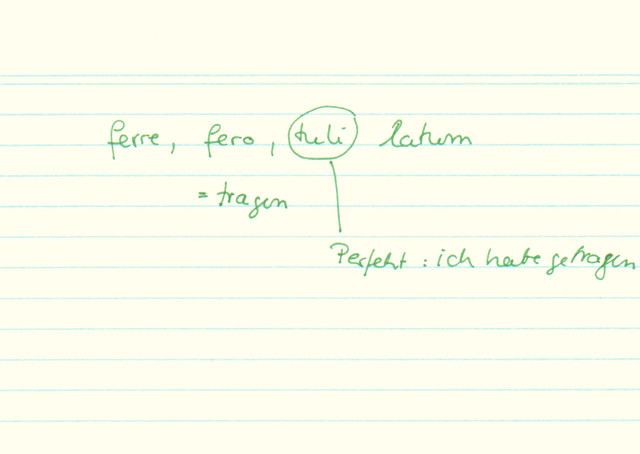 ferre, fero, tuli latum
= tragen
Perfekt : ich habe getragen